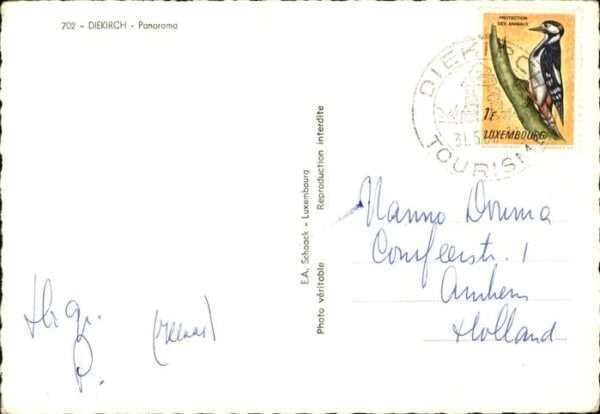 702 - DIEKIRCH - Panorama
PROTECTION
DES ANIMAUX
1F
LUXEMBOURG
DIEK
31.5.
TOURISME
E.A. Schaack - Luxembourg
Photo véritable Reproduction interdite
Nanno Douma
1
Arnhem
Holland